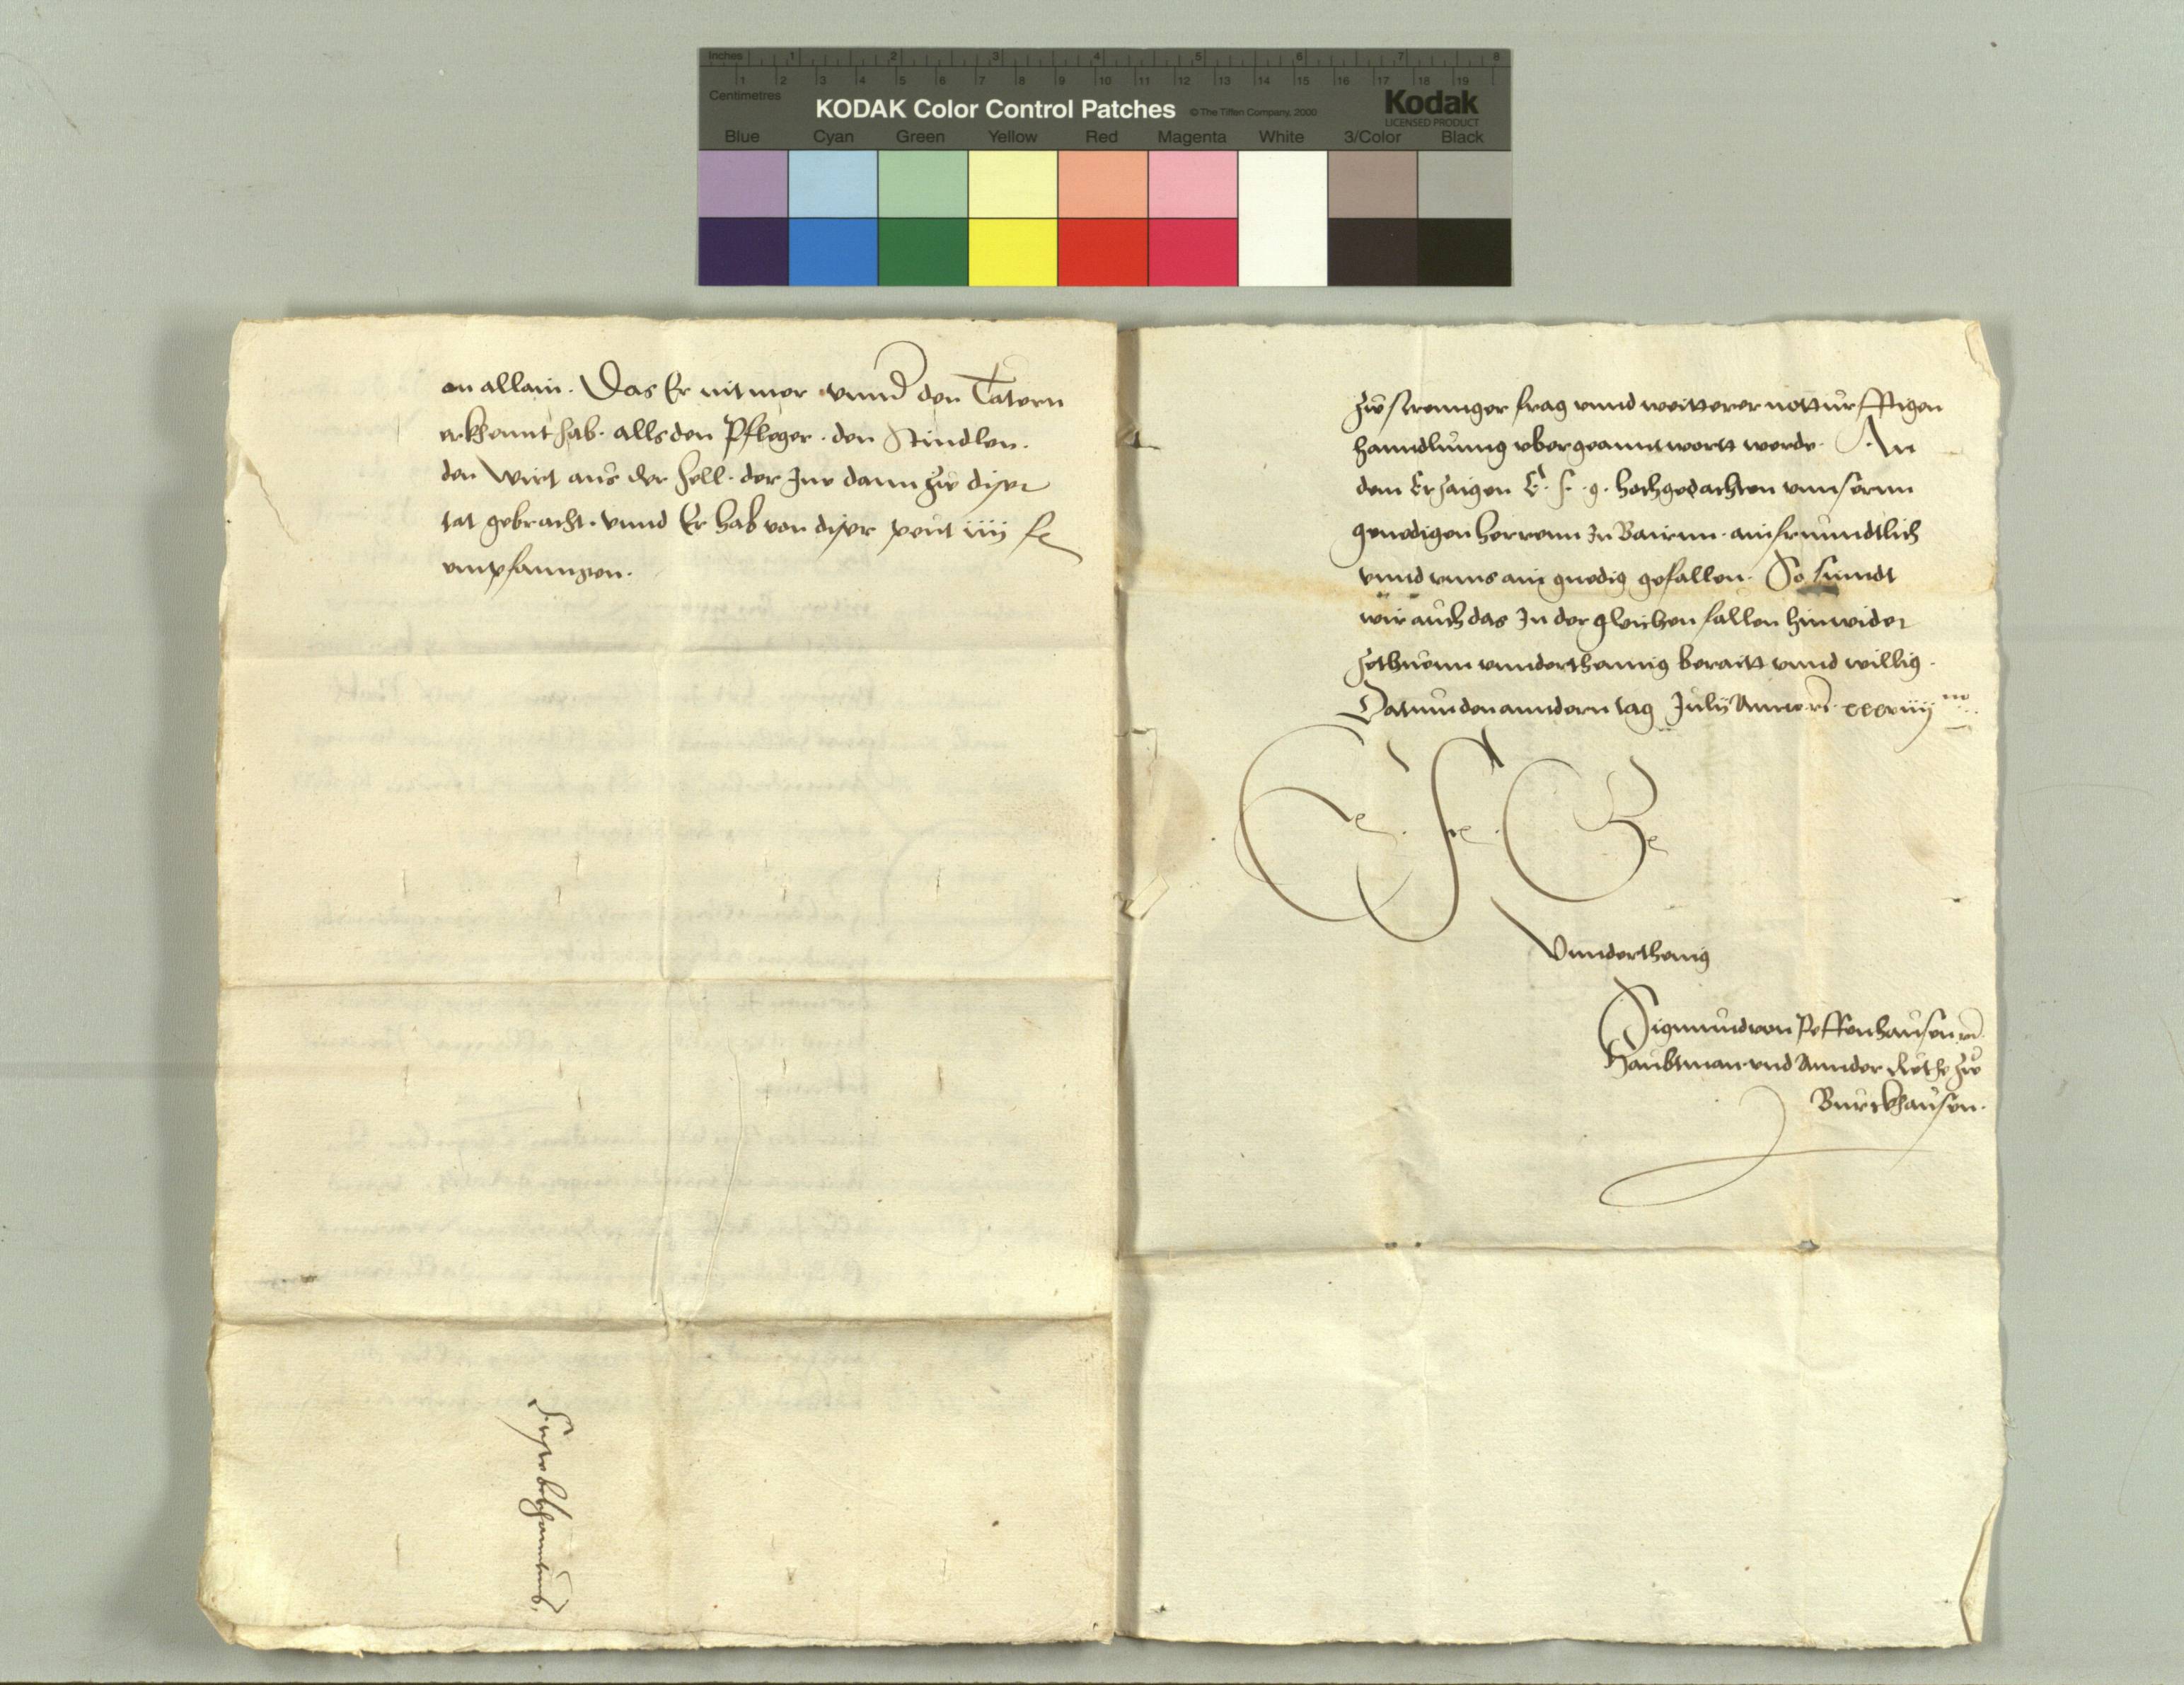 Inches 1 2 3 4 5 6 7 8
1 2 3 4 5 6 7 8 9 10 11 12 13 14 15 16 17 18 19
Centimetres
KODAK Color Control Patches © The Tiffen Company, 2000 Kodak
LICENSED PRODUCT
Blue Cyan Green Yellow Red Magenta White 3/Color Black
an allain. Das Er nit mer vnnd den Tatern
erkhennt hab. alls den Pfleger. den Stindlen.
den Wirt aus der Hell. der Ine dann zw diser
tat gebracht. Vnnd Er hab von diser peut iiii
emphanngen.
zw strennger frag vnnd weitterer notturfftigen
hanndlunng vbergeanntwortt werde. An
dem Erzaigen E. f. g. hochgedachten vnnserm
genedigen herrenn In Bairnn. ain frunndtlich
vnnd vnns ain gnedig gefallen. So sinndt
wir auch das In der gleichen fallen hinwider
zethuenn vnnderthennig beraitt vnnd willig.
Datum den anndern tag July Anno xxxviiij
E. F. G.
Vnnderthenig
Sigmund von Peffenhausen
Haubtman vnd Annder Rethe zw
Burckhausen.